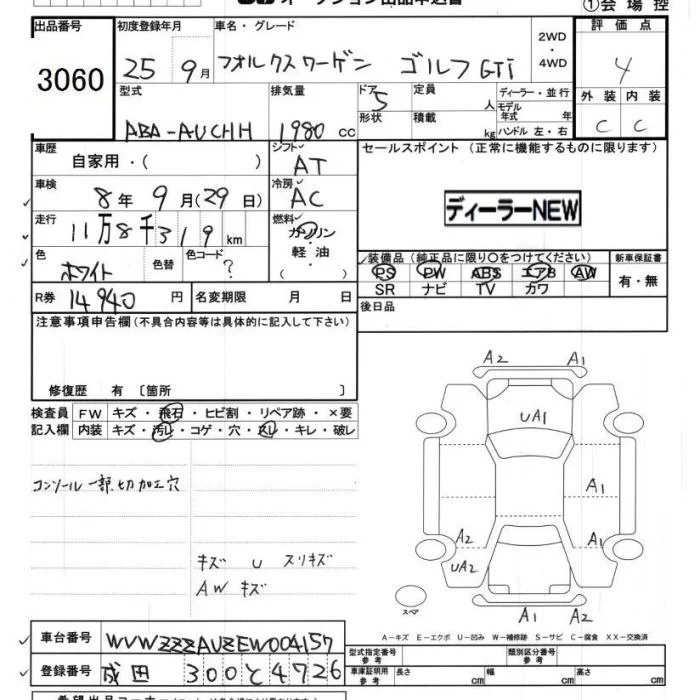 ①会場控
出品番号 初度登録年月 車名・グレード 2WD・4WD 評価点
3060 25 9月 フオルクスワーゲン ゴルフGTi 4
型式 排気量 ドア 定員 ディーラー・並行 外装 内装
ABA-AUCHH 1980 cc 5 人 モデル年式 年 C C
形状 積載 kg ハンドル 左・右
車歴 シフト セールスポイント (正常に機能するものに限ります)
自家用・( ) AT
車検 8年9月(29日) 冷房 AC ディーラーNEW
走行 11万8千319km 燃料 ガソリン
軽油
( )
色 ホワイト 色替 色コード ? 装備品 (純正品に限り○をつけてください) 新車保証書
PS PW ABS エアB AW 有・無
SR ナビ TV カワ
R券 14940円 名変期限 月 日 後日品
注意事項申告欄(不具合内容等は具体的に記入して下さい)
修復歴 有 [箇所 ]
検査員 FW キズ・飛石・ヒビ割・リペア跡・×要
記入欄 内装 キズ・汚レ・コゲ・穴・スレ・キレ・破レ
A2 A1
UA1
コンソール一部切加工穴 A1
A2 A1
UA2
キズ U スリキズ
AW キズ
スペア
A1 A2
A-キズ E-エクボ U-凹み W-補修跡 S-サビ C-腐食 XX-交換済
車台番号 WVWZZZAUZEW004157
型式指定番号 参考 類別区分番号 参考
登録番号 成田 300と4726
車庫証明用 参考 長さ cm 幅 cm 高さ cm